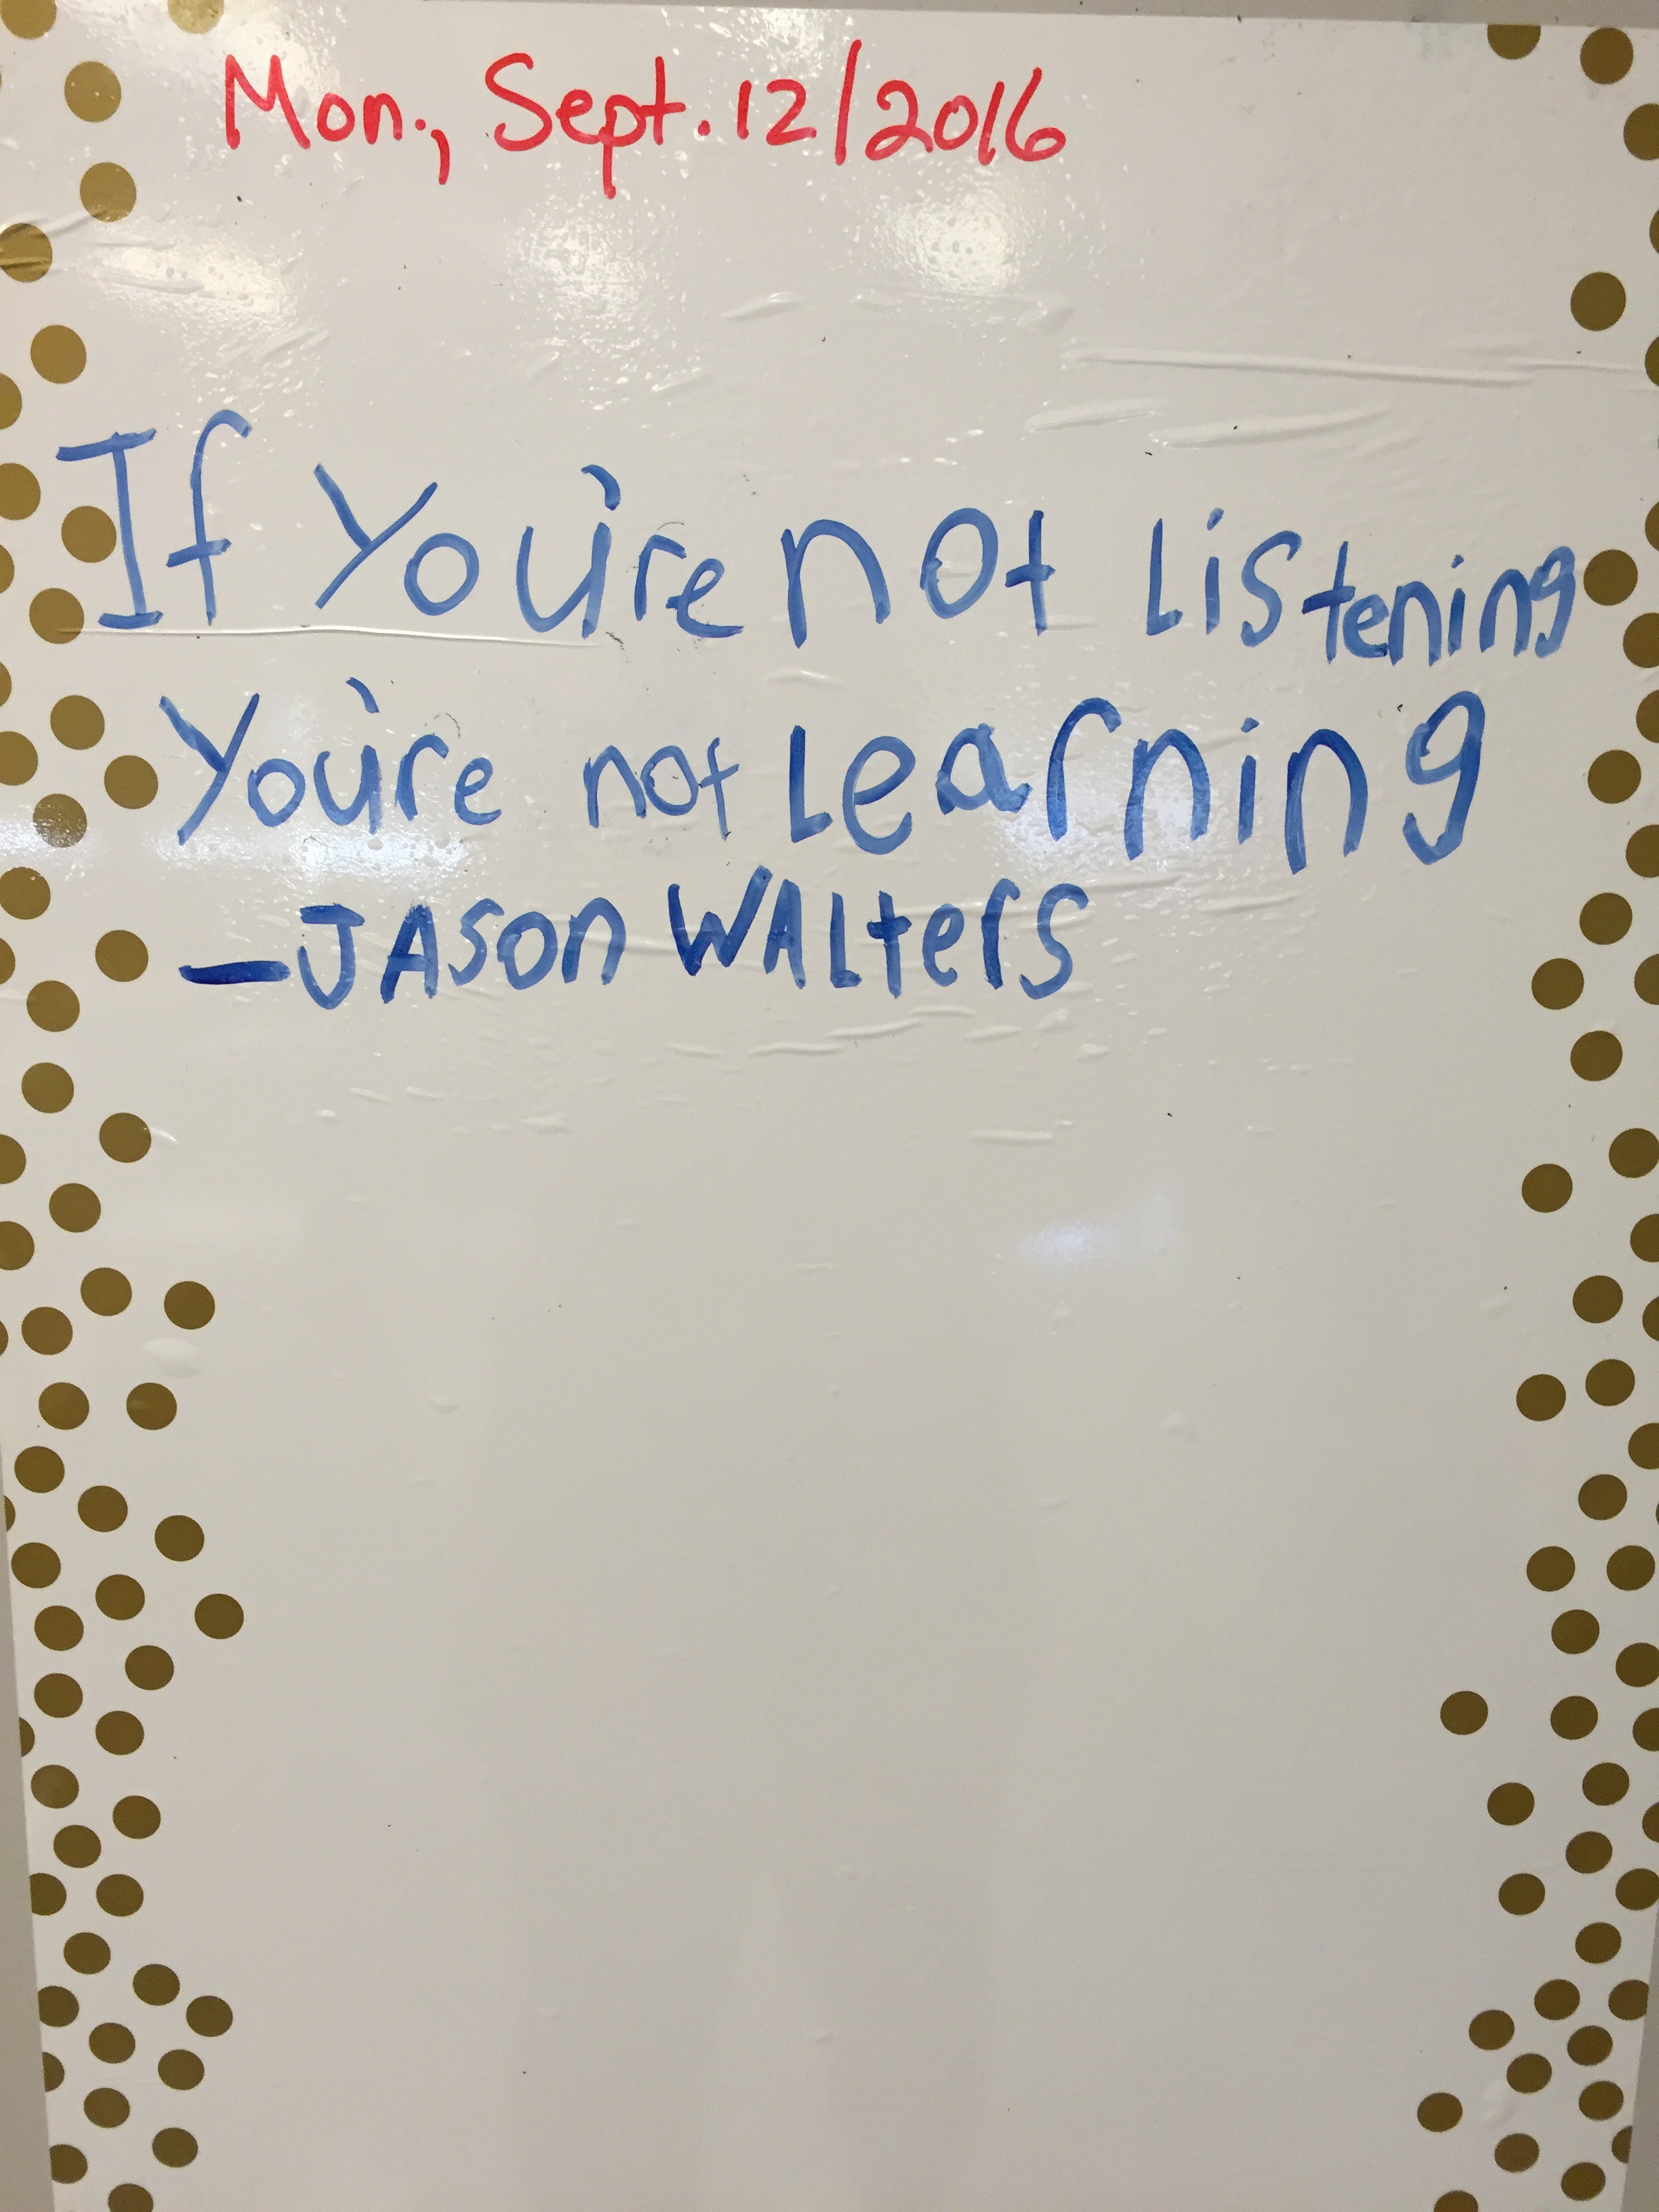 Mon., Sept. 12/2016
If You're not Listening
You're not Learning
-JAson WALters